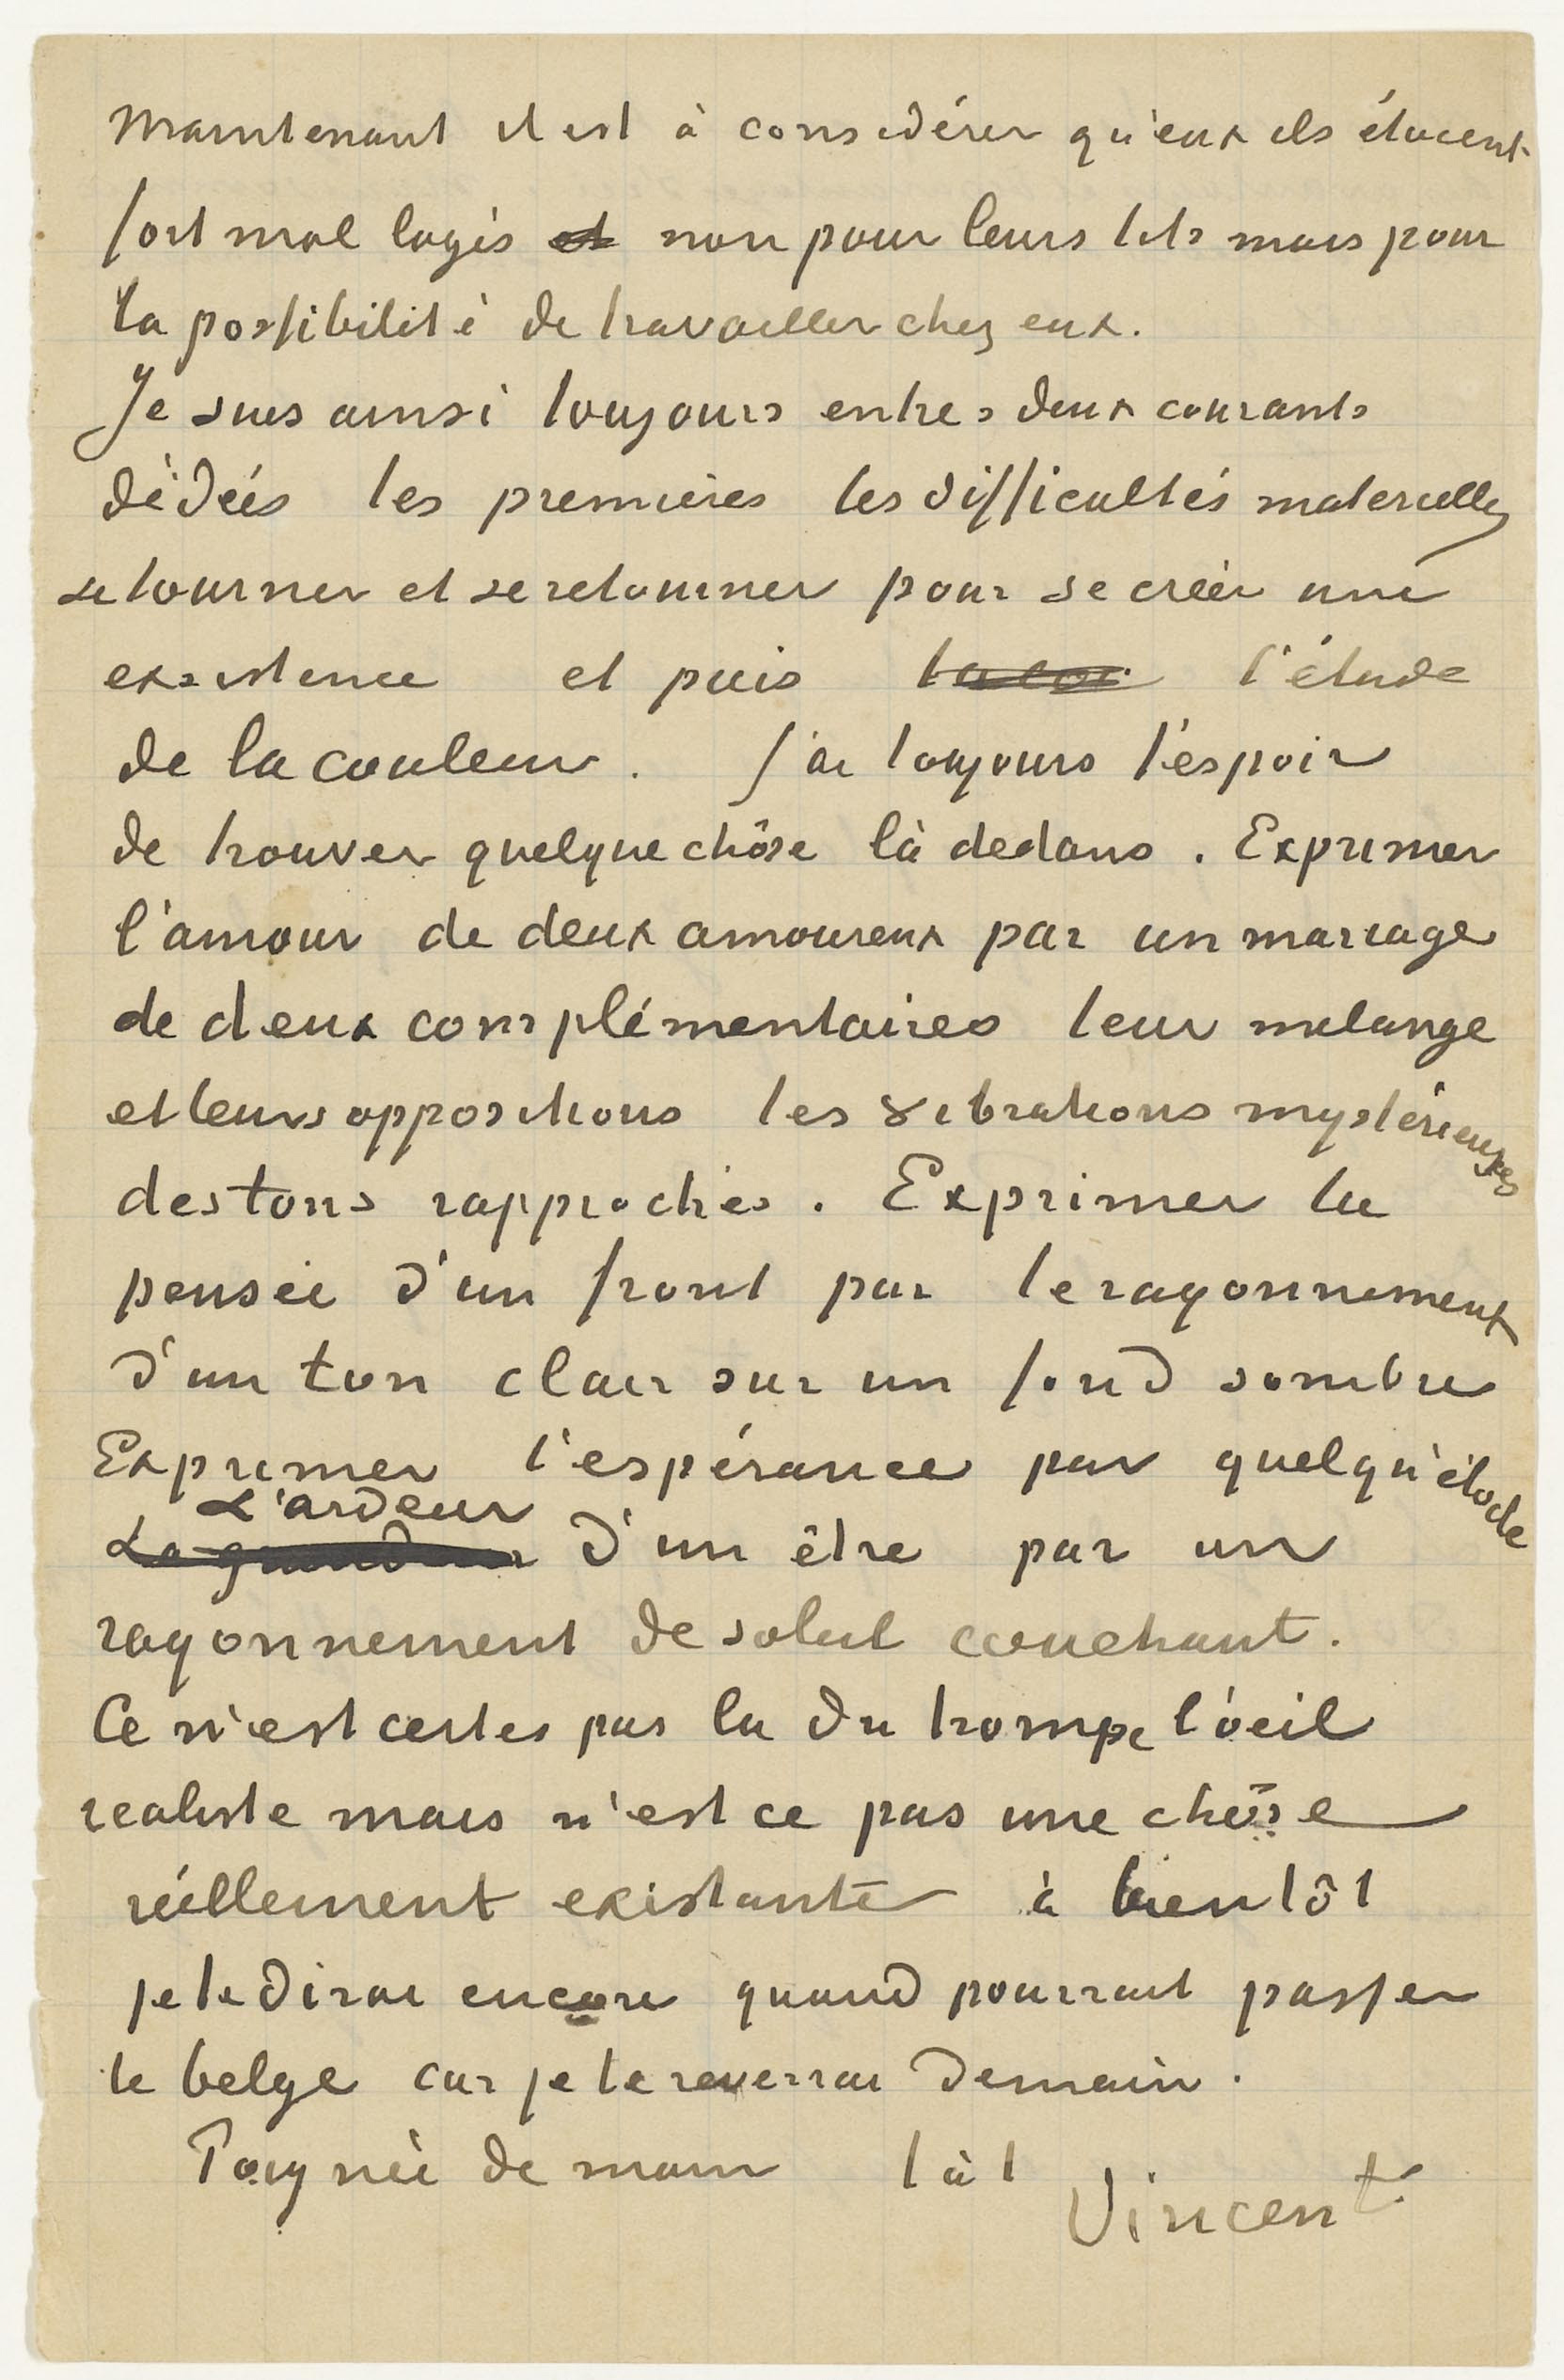 Maintenant il est à considérer qu'eux ils étaient
fort mal logés et non pour leurs lits mais pour
la possibilité de travailler chez eux.
Je suis ainsi toujours entre deux courants
d'idées les premières les difficultés materielles
se tourner et se retourner pour se créer une
existence et puis la cou l'étude
de la couleur. J'ai toujours l'espoir
de trouver quelque chôse là dedans. Exprimer
l'amour de deux amoureux par un mariage
de deux complémentaires leur melange
et leurs oppositions les vibrations mystérieuses
des tons rapprochés. Exprimer la
pensée d'un front par le rayonnement
d'un ton clair sur un fond sombre
Exprimer l'espérance par quelqu'étoile
L'ardeur
La grandeur d'un être par un
rayonnement de soleil couchant.
Ce n'est certes pas la du trompe l'oeil
realiste mais n'est ce pas une chôse
réellement existante à bientôt
je te dirai encore quand pourrait passer
le belge car je le reverrai demain.
Poignée de main t. à t. Vincent